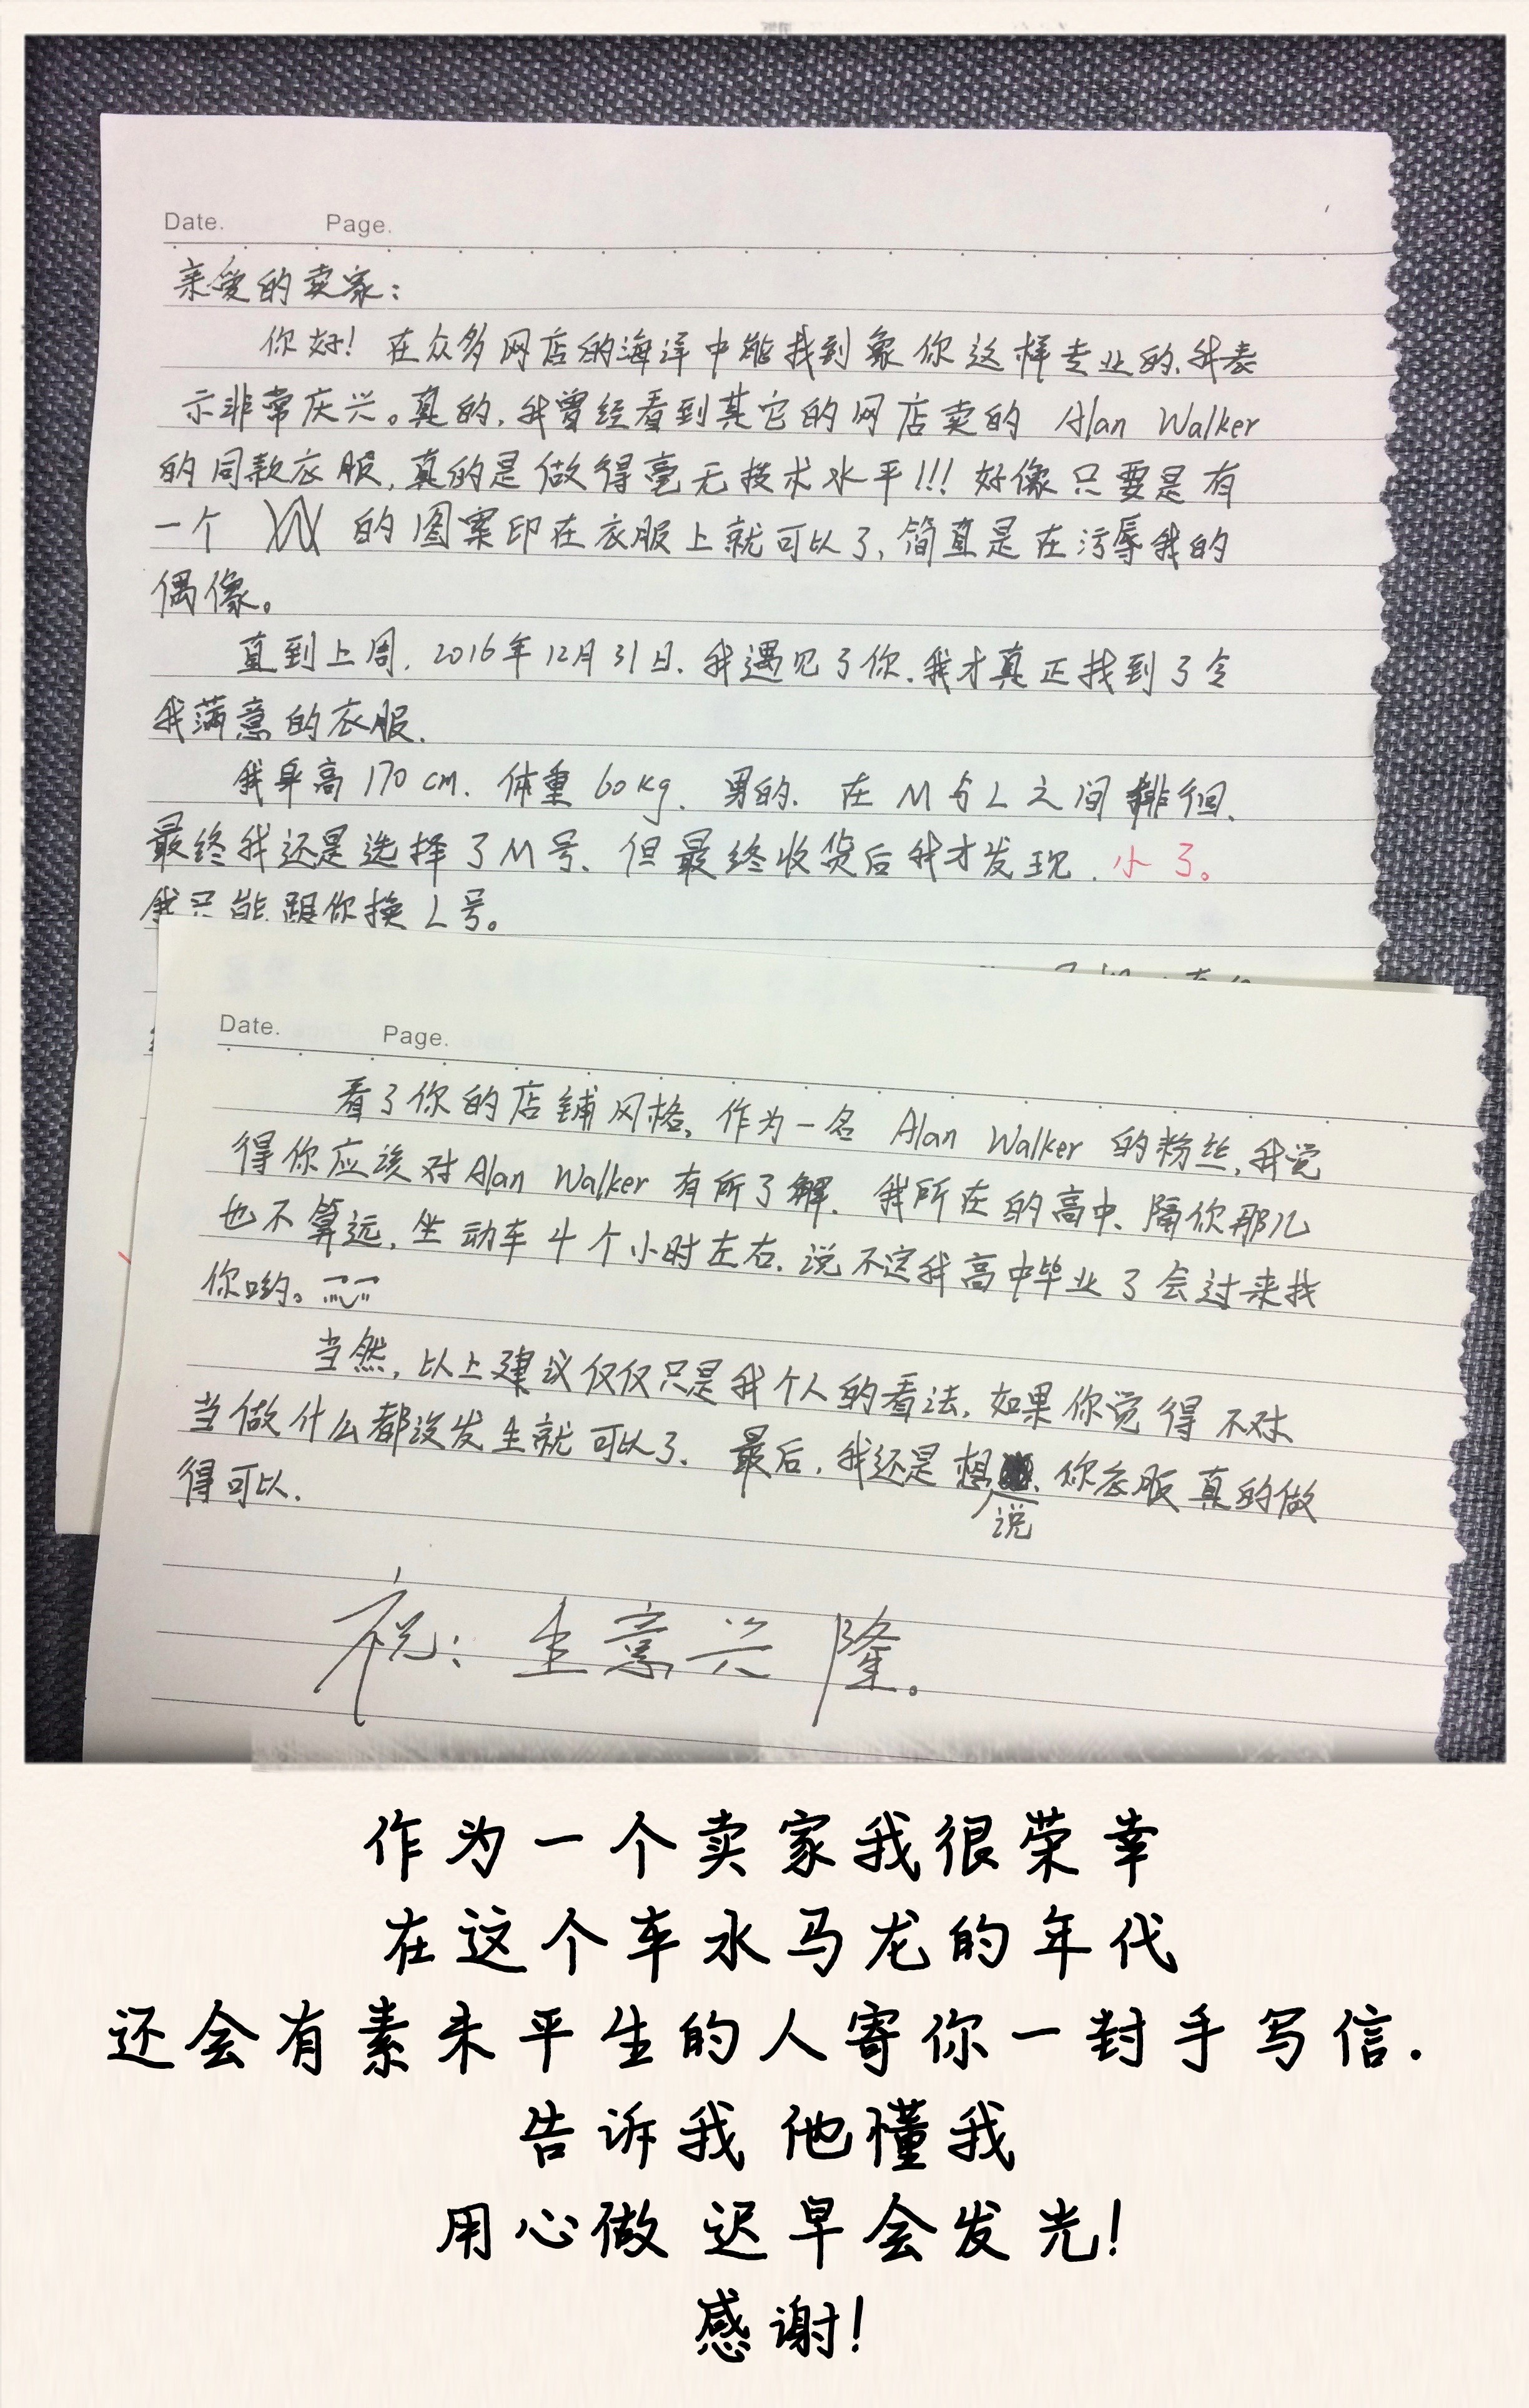 Date. Page.
亲爱的卖家：
你好！在众多网店的海洋中能找到象你这样专业的,我表
示非常庆兴。真的,我曾经看到其它的网店卖的 Alan Walker
的同款衣服,真的是做得毫无技术水平!!! 好像只要是有
一个 的图案印在衣服上就可以了,简直是在污辱我的
偶像。
直到上周,2016年12月31日.我遇见了你.我才真正找到了令
我满意的衣服.
我身高170cm. 体重60kg. 男的. 在M与L之间徘徊.
最终我还是选择了M号. 但最终收货后我才发现.小了。
我只能跟你换L号。
Date. Page.
看了你的店铺风格,作为一名 Alan Walker 的粉丝,我觉
得你应该对Alan Walker有所了解. 我所在的高中.隔你那儿
也不算远,坐动车4个小时左右.说不定我高中毕业了会过来找
你哟。
当然,以上建议仅仅只是我个人的看法.如果你觉得不对
当做什么都没发生就可以了. 最后,我还是想说你衣服真的做
得可以.
祝：生意兴隆。
作为一个卖家我很荣幸
在这个车水马龙的年代
还会有素未平生的人寄你一封手写信.
告诉我 他懂我
用心做 迟早会发光!
感谢!